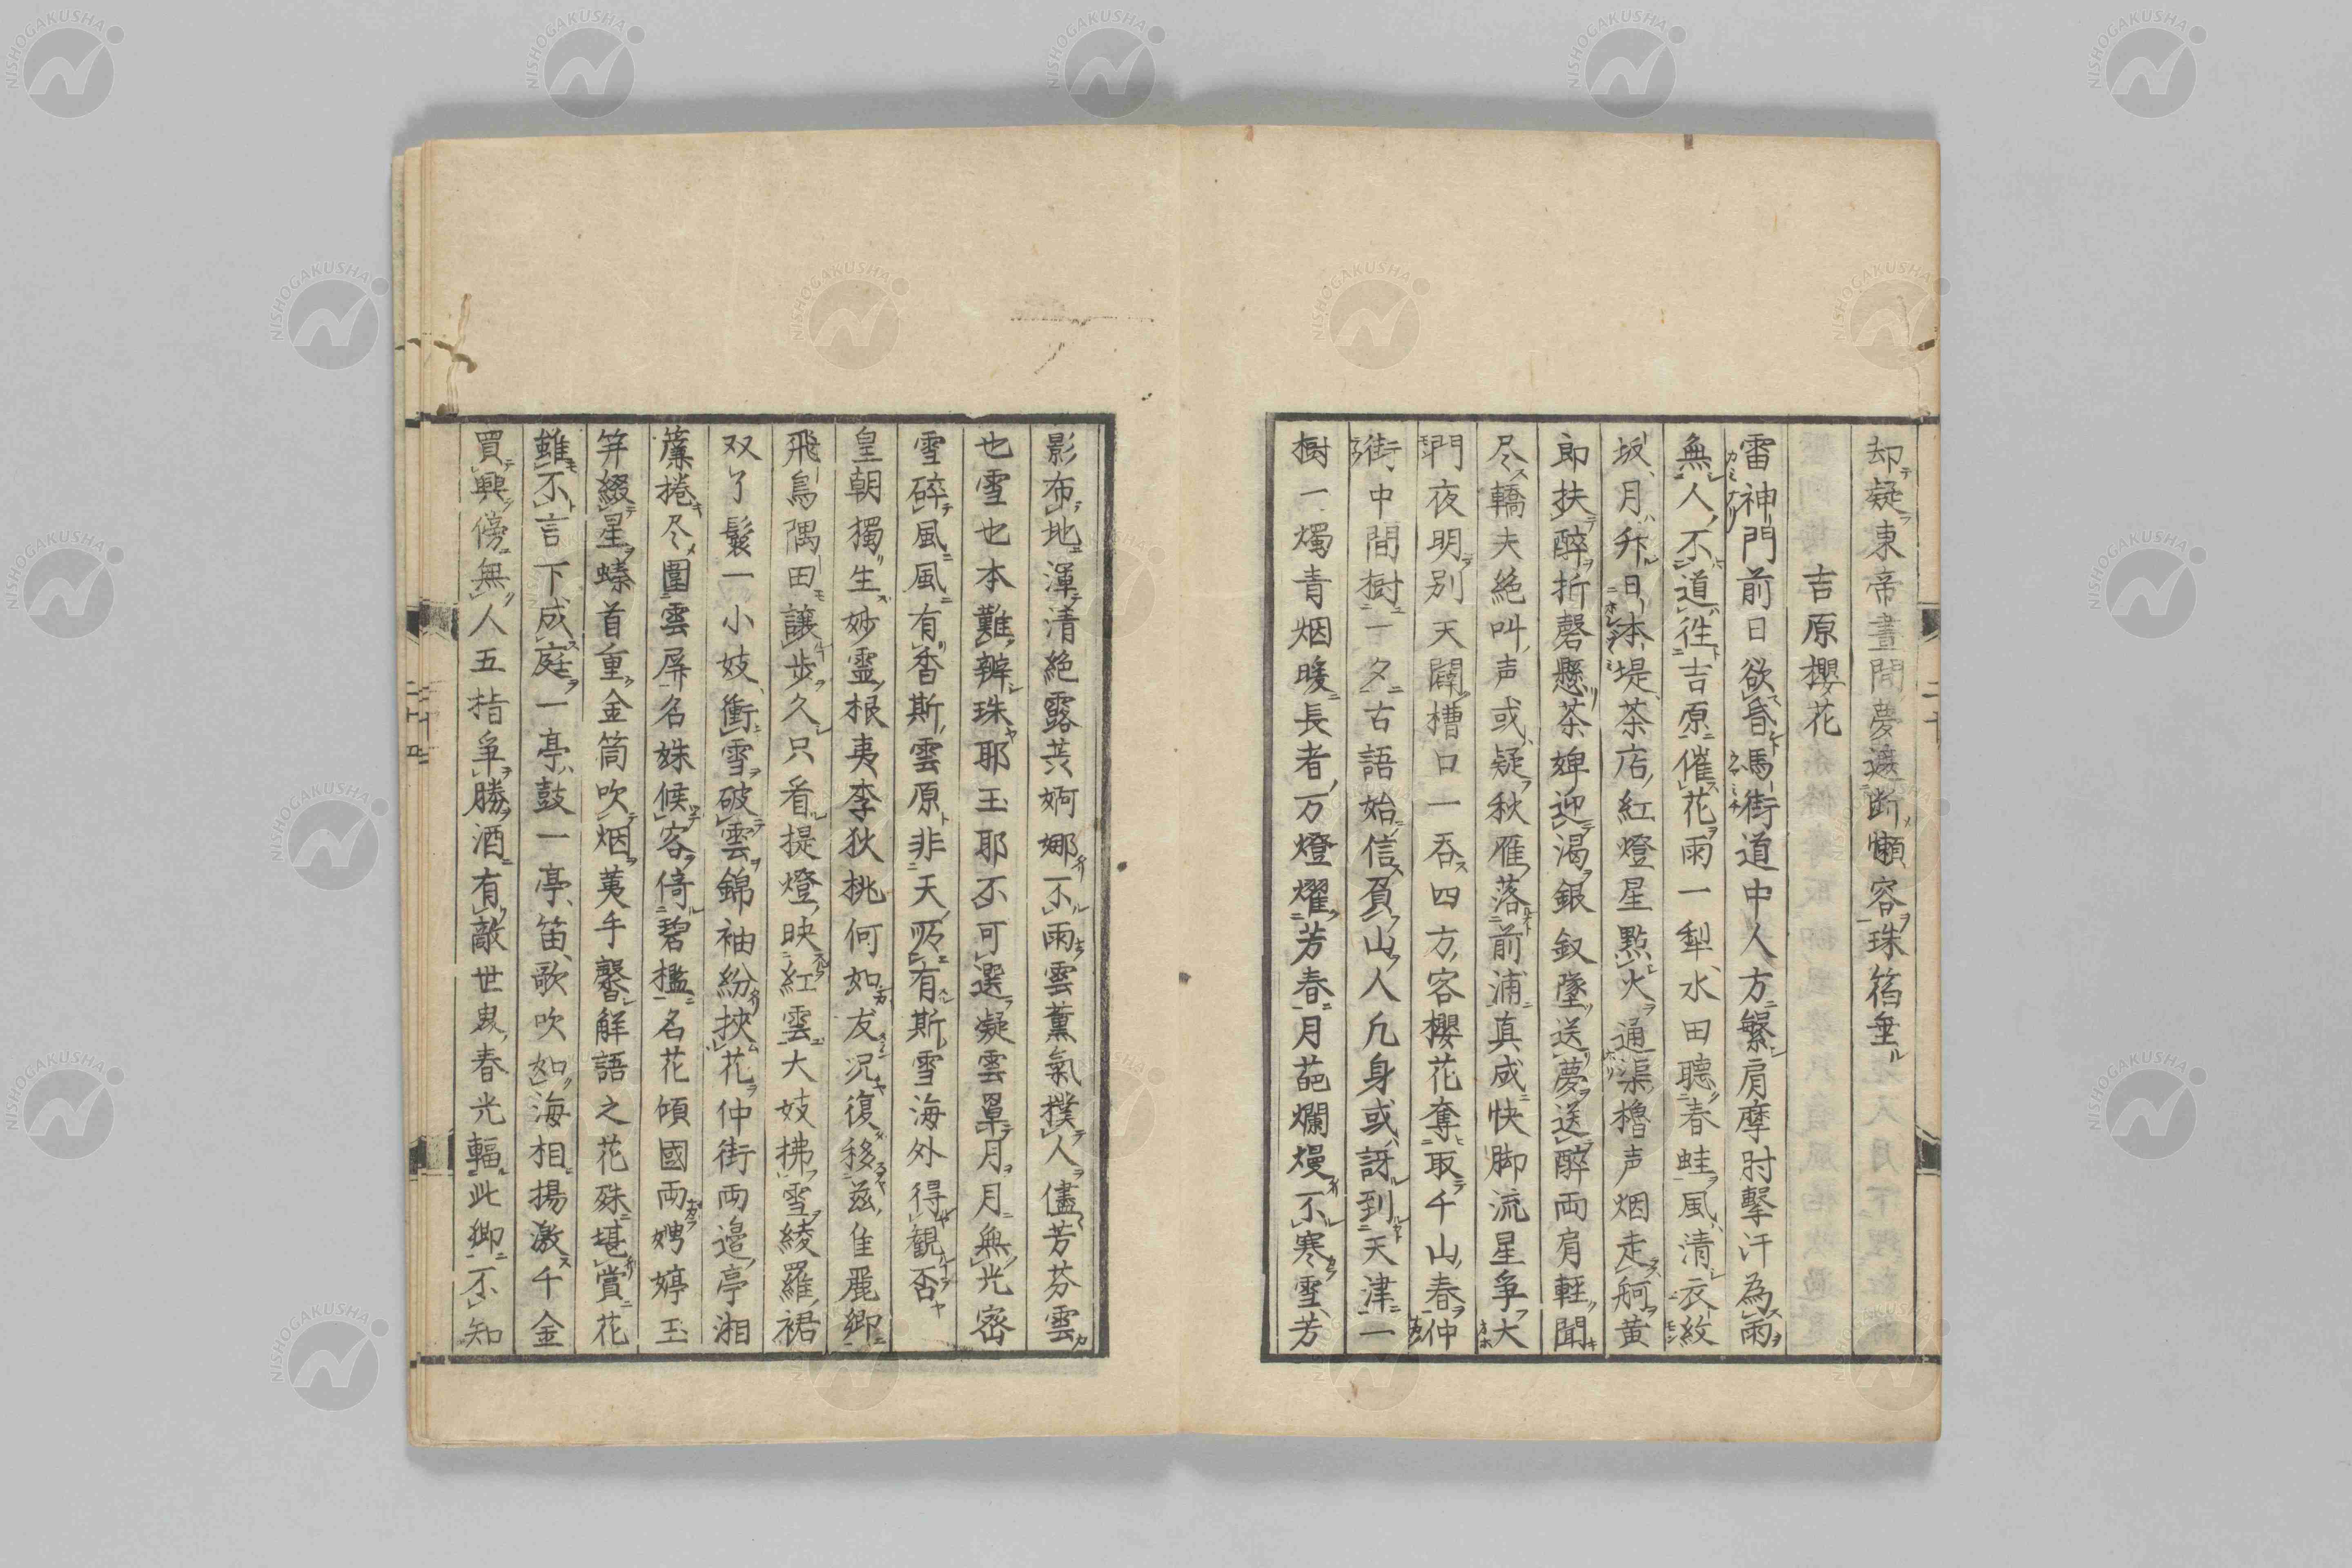 却疑東帝晝間夢遊断懶容珠箔垂
吉原櫻花
雷神門前日欲昏馬街道中人方繁肩摩肘擊汗為雨
無人不道往吉原催花雨一犁水田聽春蛙風清衣紋
坂月升日本堤茶店紅燈星點火通渠櫓声烟走舸黄
郎扶醉折磬懸茶婢迎渴銀釵墜送夢送醉両肩輕聞
尽轎夫絶叫声或疑秋雁落前浦真成快脚流星争大
門夜明別天闢槽口一呑四方客櫻花奪取千山春仲
街中間樹一夕古語始信負山人凢身或訝到天津一
樹一燭青烟暖長者万燈燿芳春月葩爛熳不寒雪芳
影布地渾清絶露英婀娜不雨雲薫氣撲人儘芳芬雲
也雪也本難辨珠耶玉耶不可選凝雲罩月月無光密
雪碎風風有香斯雲原非天所有斯雪海外得観否
皇朝獨生妙靈根夷李狄桃何如友况復移茲佳麗郷
飛鳥隅田讓歩久只看提燈映紅雲大妓拂雪綾羅裙
双了鬟一小妓衝雪破雲錦袖紛挾花仲街両邉亭湘
簾捲尽圍雲屏名姝候客倚碧檻名花傾國両娉婷玉
笄綴星螓首重金筒吹烟荑手馨解語之花殊堪賞花
雖不言下成庭一亭鼓一亭笛歌吹如海相揚激千金
買興傍無人五指争勝酒有敵世界春光輻此郷不知
二十
二十四
NISHOGAKUSHA